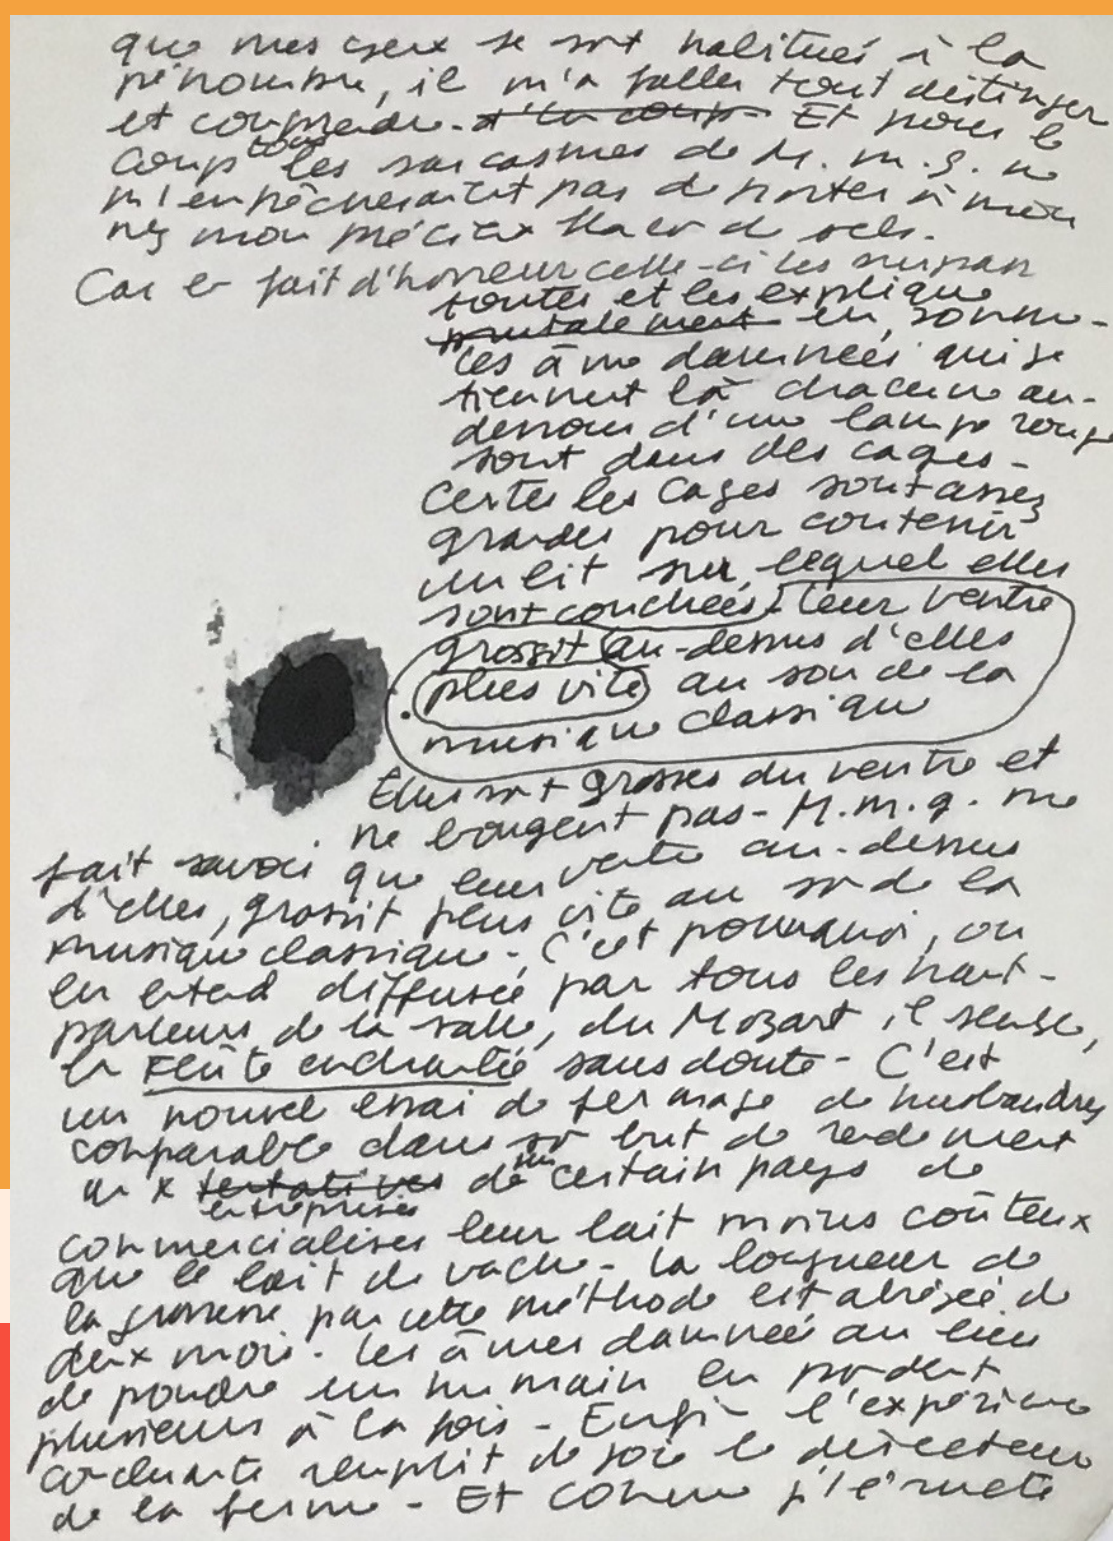 que mes yeux se sont habitués à la
pénombre, il m'a fallu tout distinguer
et comprendre. d'un coup. Et pour le
coup tous les sarcasmes de M. m. g. ne
m'empêcheraient pas de porter à mon
nez mon précieux flacon de sels.
Car le fait d'horreur celle-ci les surpasse
toutes et les explique
brutalement en somme -
les âmes damnées qui se
tiennent là chacune au-
dessous d'une lampe rouge
sont dans des cages -
Certes les cages sont assez
grandes pour contenir
un lit sur lequel elles
sont couchées. leur ventre
grossit au-dessus d'elles
plus vite au son de la
musique classique
Elles sont grosses du ventre et
ne bougent pas - M. m. g. me
fait savoir que leur ventre au-dessus
d'elles, grossit plus vite au son de la
musique classique -, C'est pourquoi, on
en entend diffusée par tous les haut-
parleurs de la salle, du Mozart, il semble,
la Flûte enchantée sans doute - C'est
un nouvel essai de fermage de
comparable dans son but de rendement
aux tentatives de certain pays de
entreprises
commercialiser leur lait moins coûteux
que le lait de vache - la longueur de
la grossesse par cette méthode est abrégée de
deux mois. les âmes damnées au lieu
de pondre un humain en pondent
plusieurs à la fois - Enfin l'expérience
concluante remplit de joie le directeur
de la ferme - Et comme j'éructe